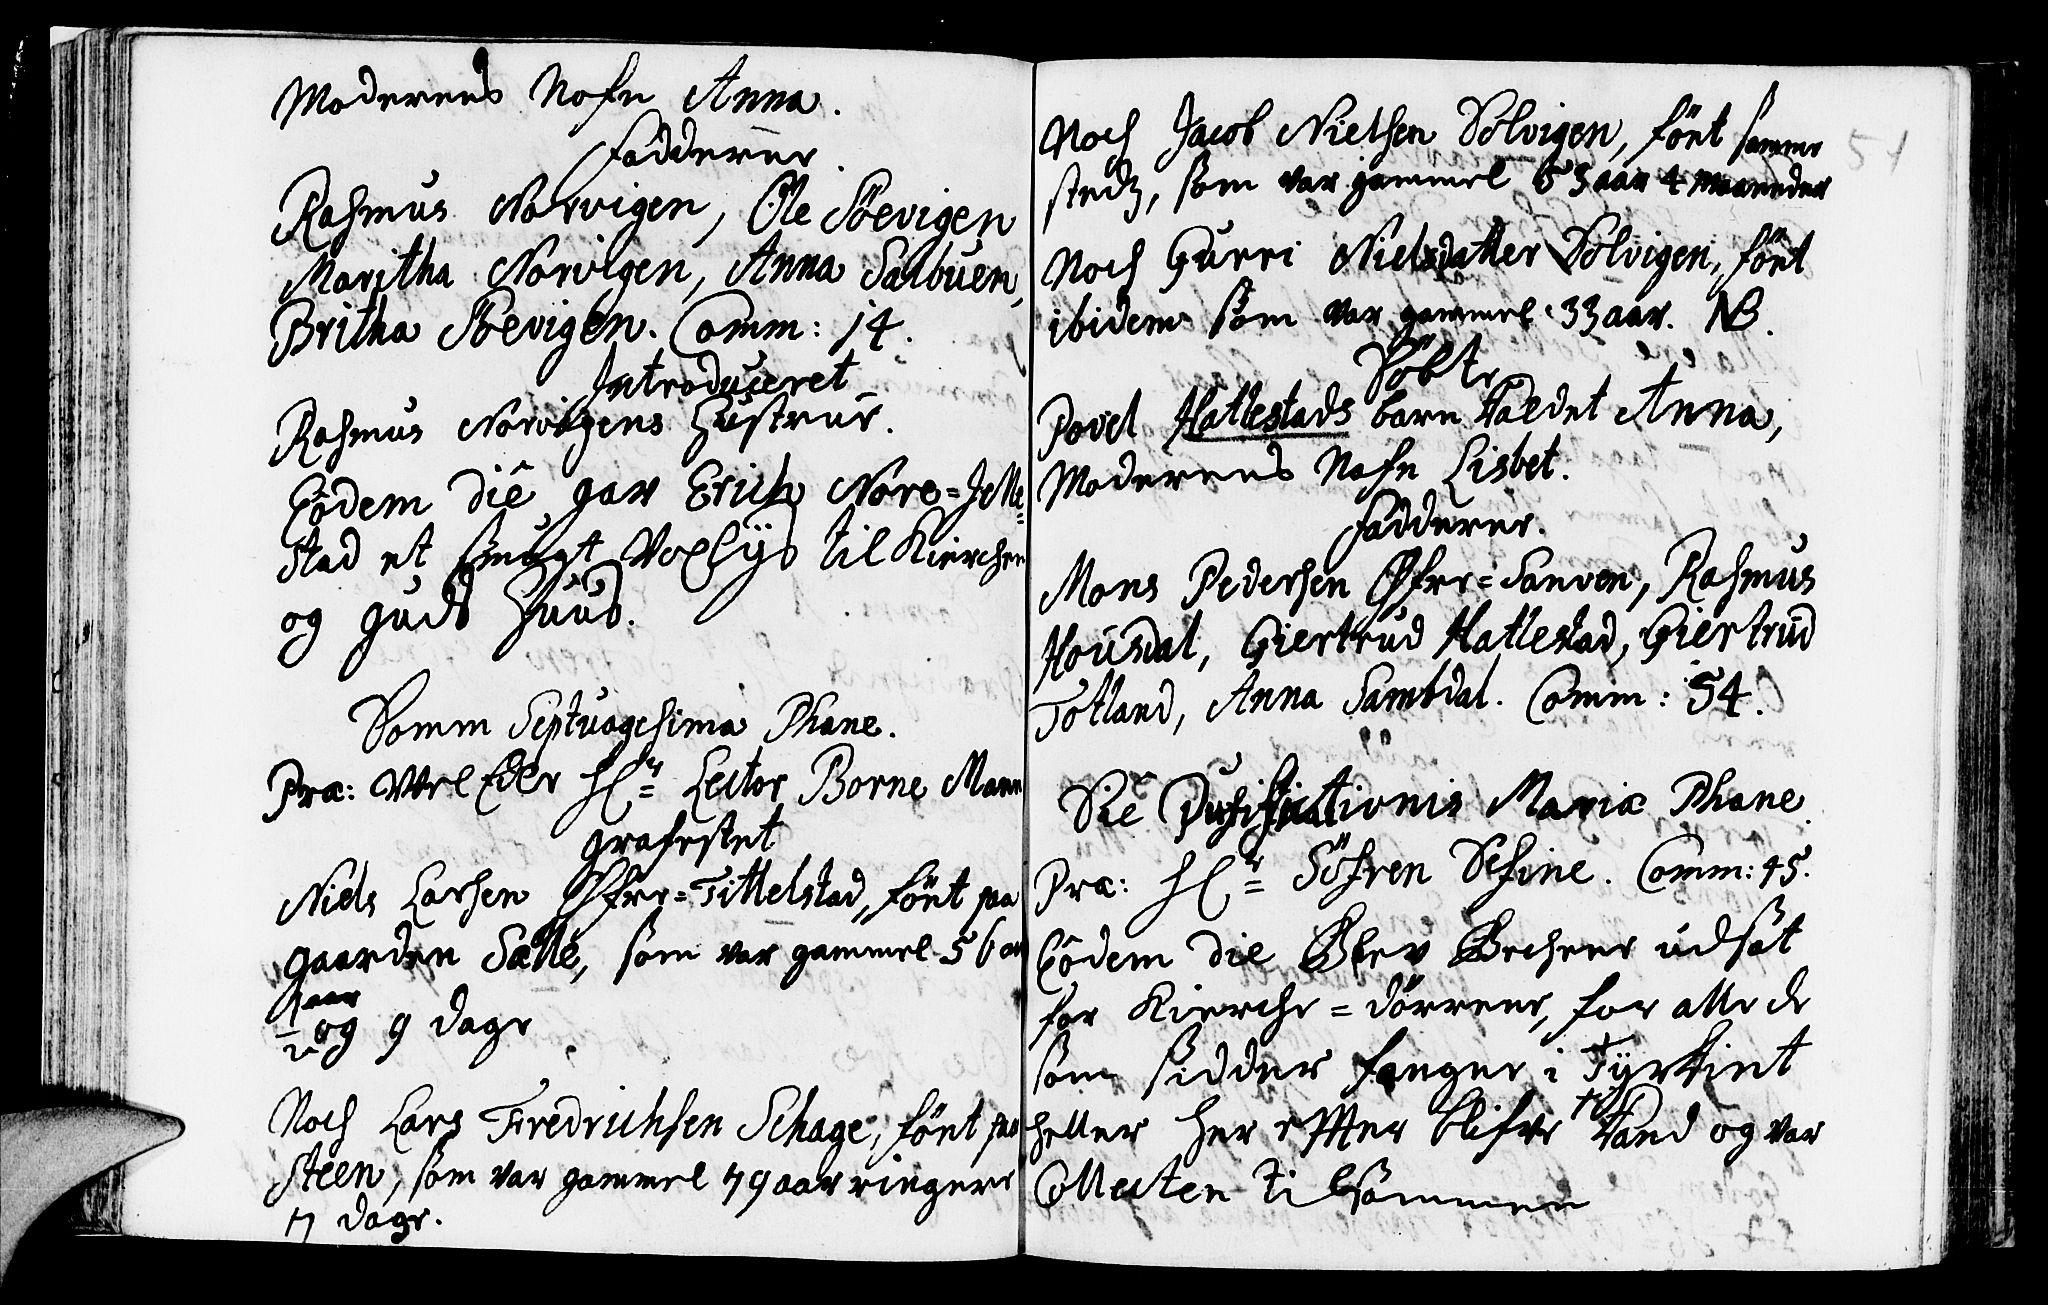 Moderens Nafn Anna.
Fadderne
Rasmus Norvigen, Ole Söevigen
Maritha Norvigen, Anna Salbuen,
Britha Söevigen. Comm: 14.
Introduceret
Rasmus Norvigens Hustrue.
Eodem die gav Erich Nore=Jelle=
stad et smugt Voxlys til Kierchen
og guds Huus.
Domm Septuagesima Phane.
Præ: Vel Edle Hr= Lector Borne Mann
grafestet
Niels Larsen Öfre=Tittelstad, föut paa
gaarden Sælle, som var gammel 56 aar
1/2 aar
og 9 dage
Noch Lars Fredrichsen Schage, föut paa
Steen, som var gammel 79 aar ringere
7 dage.
Noch Jacob Nielsen Dolvigen, föut samme
stedz, som var gammel 53 aar 4 maaneder
Noch Gurri Nielsdatter Dolvigen, föut
ibidem som var gammel 33 aar. NB.
Döbte
Povel Hatlestads barn kaldet Anna,
Moderens Nafn Lisbet.
Fadderne.
Mons Pedersen Öfre=Sanven, Rasmus
Housdal, Giertrud Hatlestad, Giertrud
Totland, Anna Samdal. Comm: 54.
Die Purificationis Mariæ Phane.
Præ: Hr= Söfren Define. Comm: 45.
Eodem die Blev Bechener udsat
for Kierche=dörrene, for alle de
som sidder fanger i Tyrkiet
heller her effter blifve tagd og var
Collecten tilsammen
54